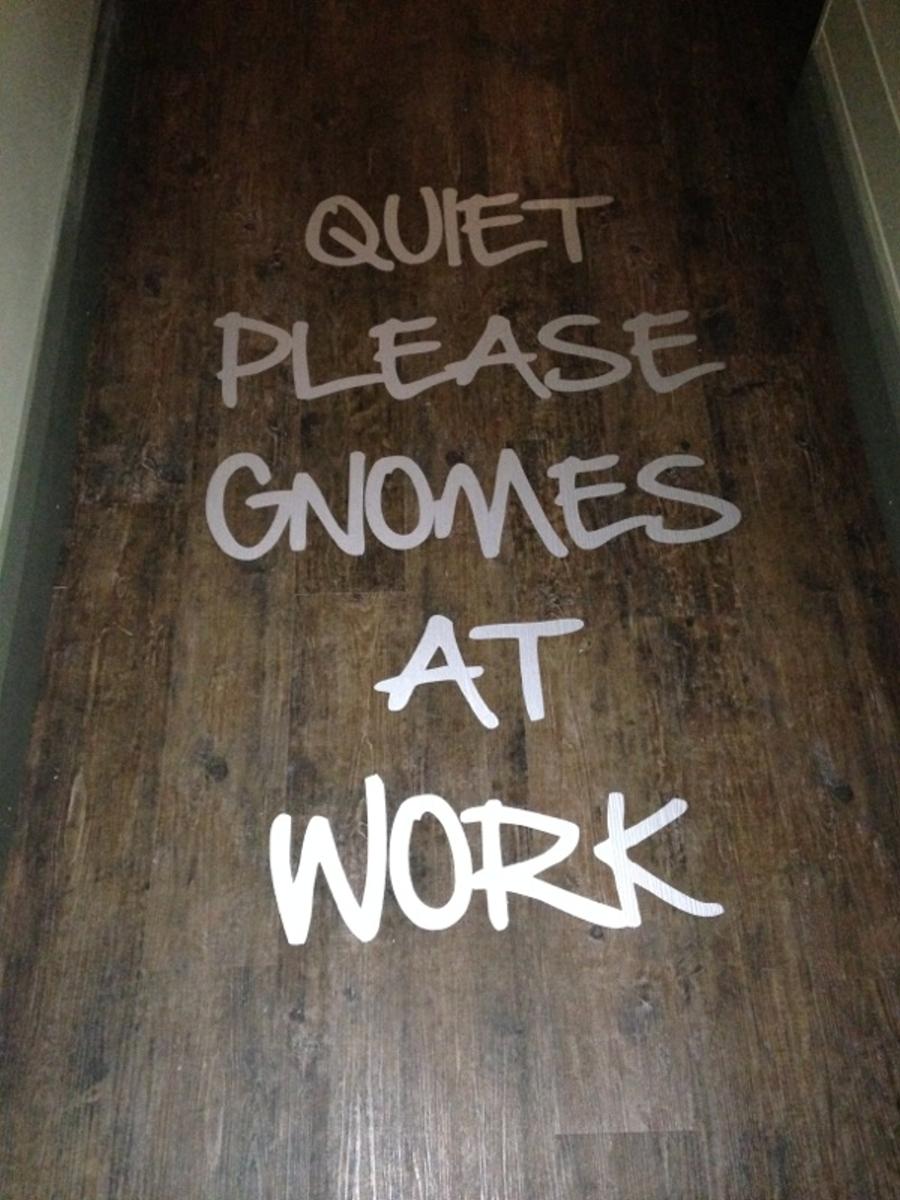 QUIET
PLEASE
GNOMES
AT
WORK